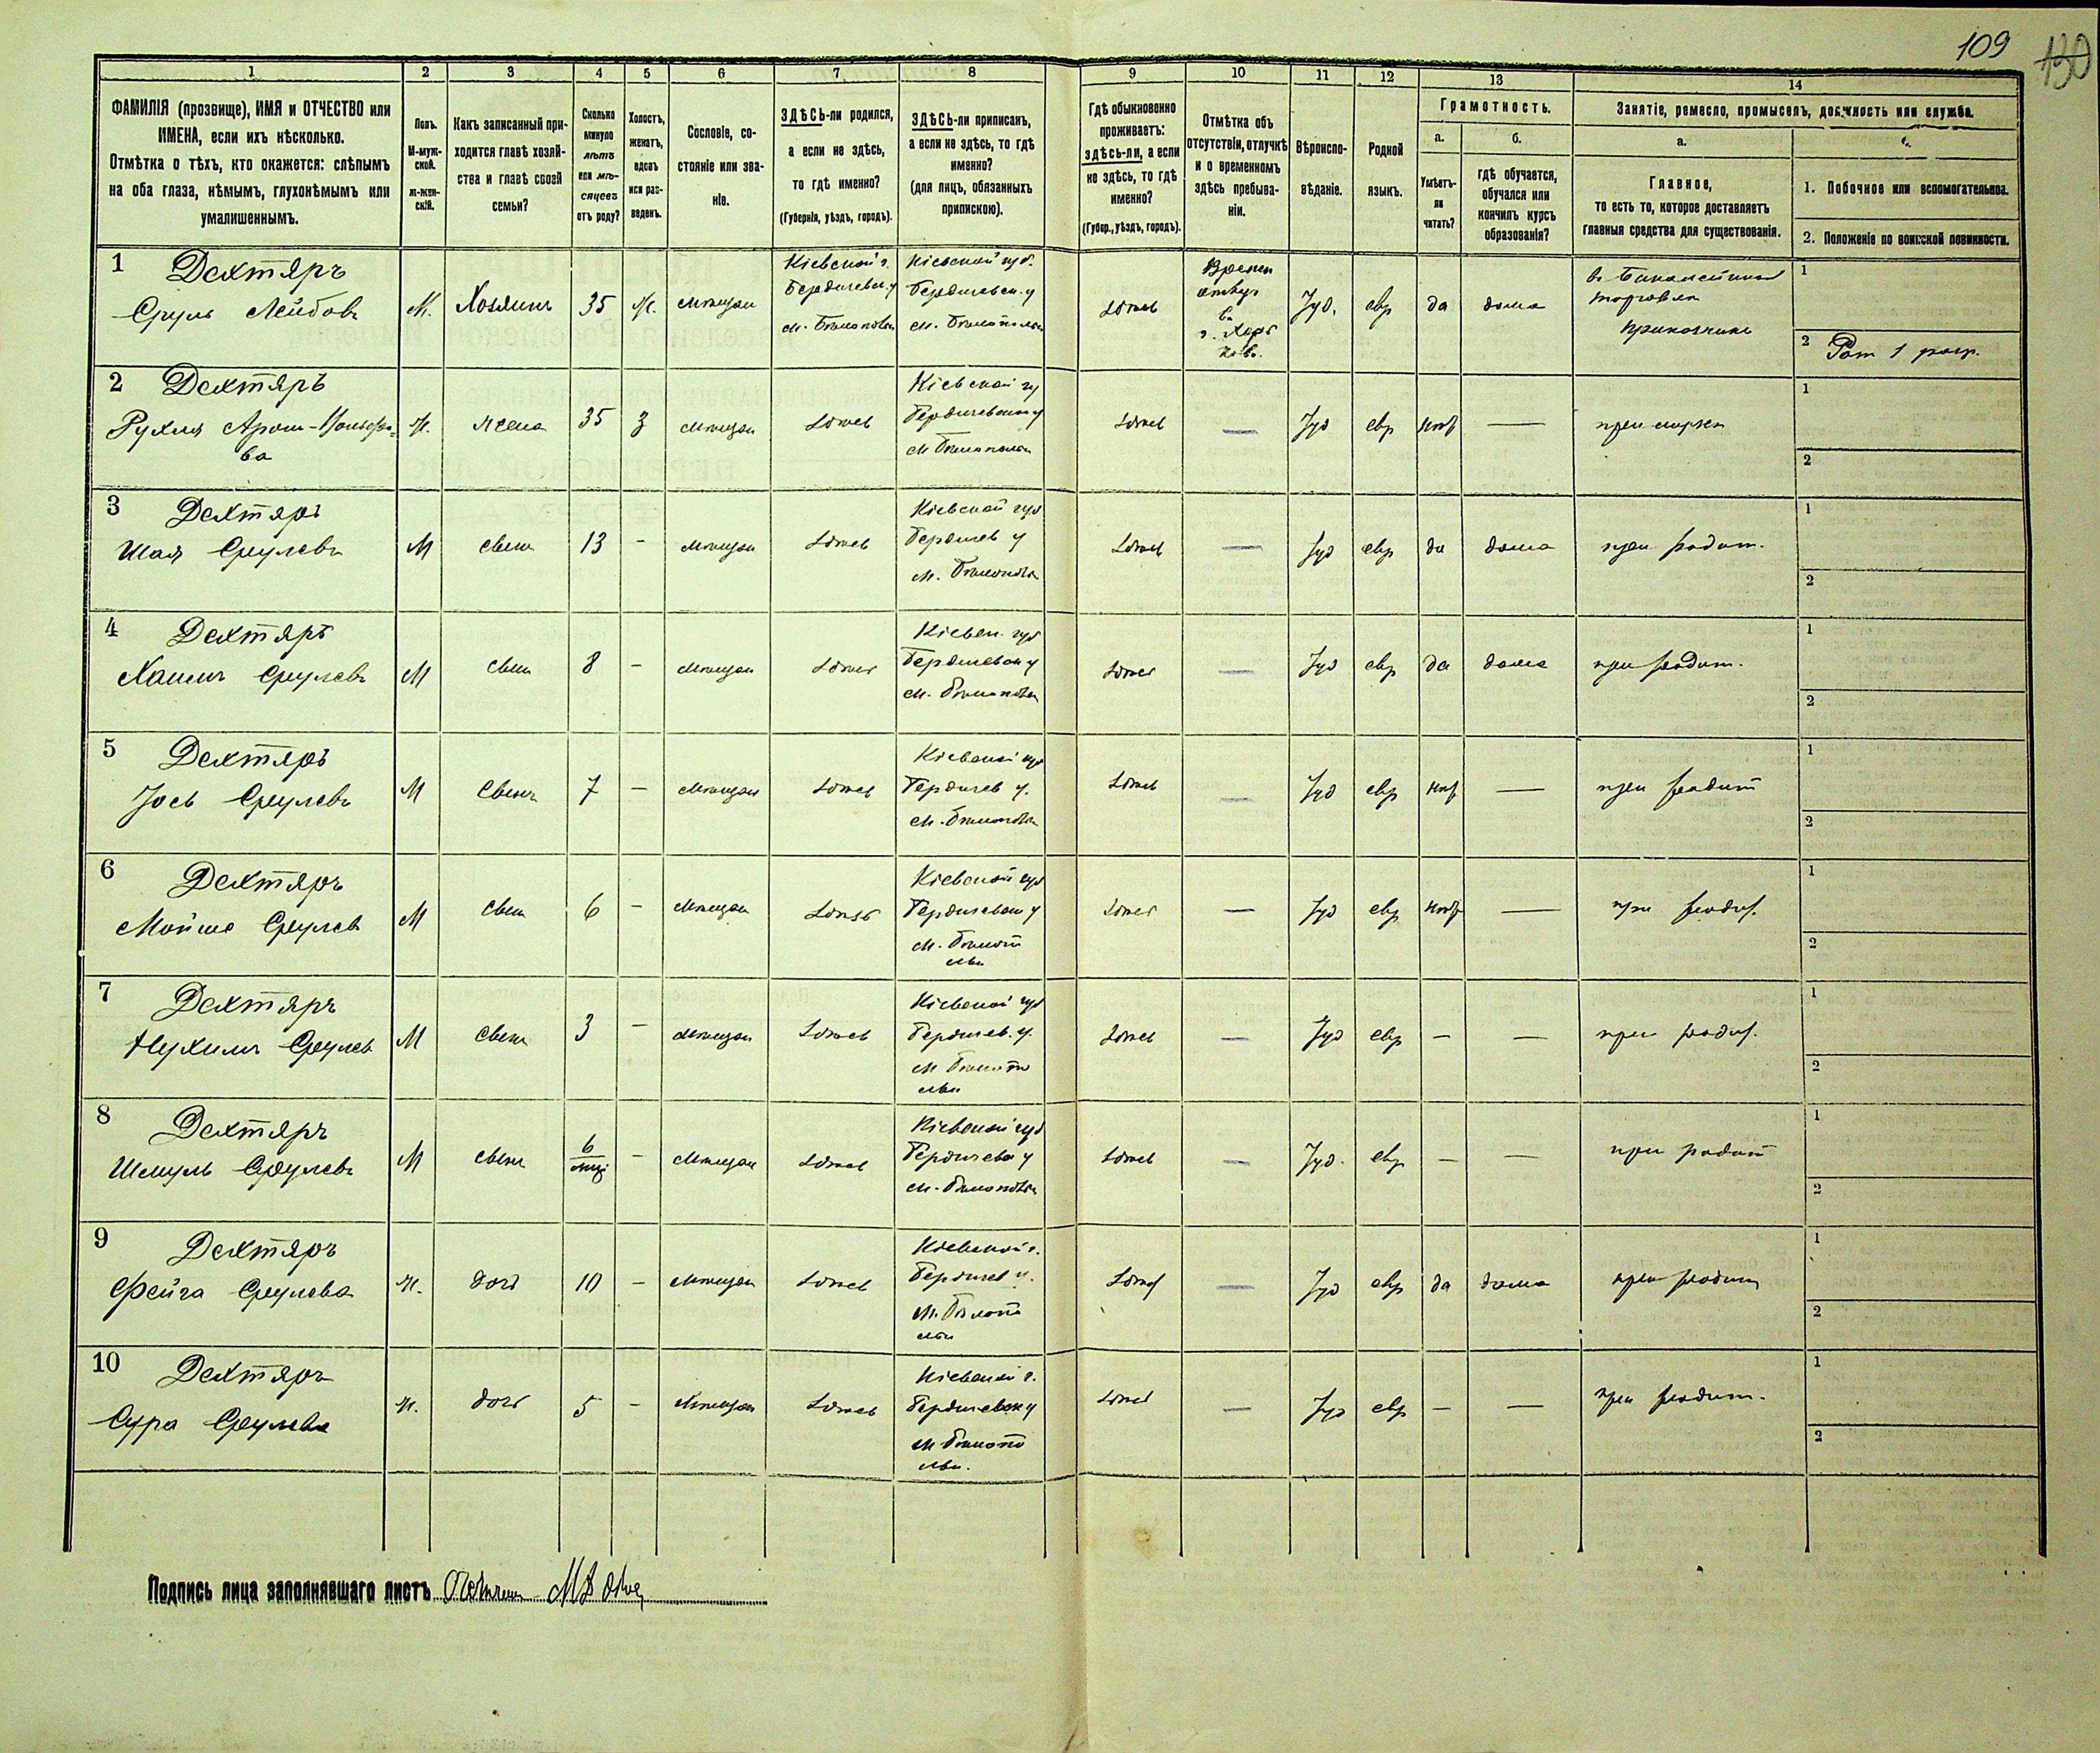 109
130
1 2 3 4 5 6 7 8 9 10 11 12 13 14
ФАМИЛІЯ (прозвище), ИМЯ и ОТЧЕСТВО или
ИМЕНА, если ихъ нѣсколько.
Отмѣтка о тѣхъ, кто окажется: слѣпымъ
на оба глаза, нѣмымъ, глухонѣмымъ или
умалишеннымъ.
Полъ.
М-муж-
ской.
ж-жен-
скій.
Какъ записанный при-
ходится главѣ хозяй-
ства и главѣ своей
семьи?
Сколько
минуло
лѣтъ
или мѣ-
сяцевъ
отъ роду?
Холостъ,
женатъ,
вдовъ
или раз-
веденъ.
Сословіе, со-
стояніе или зва-
ніе.
ЗДѢСЬ-ли родился,
а если не здѣсь,
то гдѣ именно?
(Губернія, уѣздъ, городъ).
ЗДѢСЬ-ли приписанъ,
а если не здѣсь, то гдѣ
именно?
(для лицъ, обязанныхъ
припискою).
Гдѣ обыкновенно
проживаетъ:
здѣсь-ли, а если
не здѣсь, то гдѣ
именно?
(Губер., уѣздъ, городъ).
Отмѣтка объ
отсутствіи, отлучкѣ
и о временномъ
здѣсь пребыва-
ніи.
Вѣроиспо-
вѣданіе.
Родной
языкъ.
Грамотность.
а.
Умѣетъ-
ли
читать?
б.
гдѣ обучается,
обучался или
кончилъ курсъ
образованія?
Занятіе, ремесло, промыселъ, должность или служба.
а.
Главное,
то есть то, которое доставляетъ
главныя средства для существованія.
1. Побочное или вспомогательное.
2. Положеніе по воинской повинности.
1 Дехтяръ
Сруль Лейбовъ
М. Хозяинъ 35 Ж. мѣщан
Кіевской г.
Бердичевск. у
м.
Кіевской губ.
Бердичевск. у
м.
здѣсь
Времен
отлуч
въ
г. Харь
ковъ.
Іуд. евр да дома
въ Бакалейной
торговли
прикащикъ
1
2 Рат 1 разр.
2 Дехтяръ
Рухля
ва
Ж. жена 35 З мѣщан здѣсь
Кіевской гу
Бердичевск у
м
здѣсь — Іуд евр нѣт — при мужѣ
1
2
3 Дехтяръ
Шая Срулевъ
М сынъ 13 - мѣщан здѣсь
Кіевской губ
Бердичев у
м.
здѣсь — Іуд евр да дома при родит.
1
2
4 Дехтяръ
Хаимъ Срулевъ
М сынъ 8 - мѣщан здѣсь
Кіевск. губ
Бердичевск у
м.
здѣсь — Іуд евр да дома при родит.
1
2
5 Дехтяръ
Іось Срулевъ
М сынъ 7 - мѣщан здѣсь
Кіевской губ
Бердичев у.
м.
здѣсь — Іуд евр нѣт — при родит
1
2
6 Дехтяръ
Мойше Срулев
М сынъ 6 - мѣщан здѣсь
Кіевской губ
Бердичевск у
м.
здѣсь — Іуд евр нѣт — при родит.
1
2
7 Дехтяръ
Нухимъ Срулев
М сынъ 3 - мѣщан здѣсь
Кіевской губ
Бердичев. у.
м
здѣсь — Іуд евр — — при родит.
1
2
8 Дехтяръ
Шмуль Срулевъ
М сынъ 6 мѣс - мѣщан здѣсь
Кіевской губ
Бердичевск у
м.
здѣсь — Іуд. евр — — при родит
1
2
9 Дехтяръ
Фейга Срулева
Ж. дочь 10 - мѣщан здѣсь
Кіевской г.
Бердичев у.
м.
здѣсь — Іуд евр да дома при родит
1
2
10 Дехтяръ
Сура Срулева
Ж. дочь 5 - мѣщан здѣсь
Кіевской г.
Бердичевск у
м
здѣсь — Іуд евр — — при родит.
1
2
Подпись лица заполнявшаго листъ